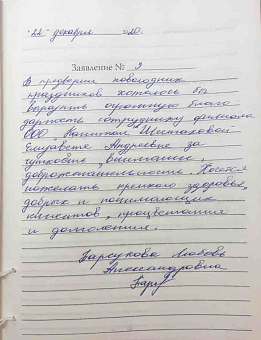 "22" декабря 20.
Заявление № 9
В предверии новогодних
праздников хотелось бы
выразить огромную благо-
дарность сотруднику филиала
ООО "Капитал" Шестаковой
Елизавете Андреевне за
чуткость, внимание,
доброжелательность. Хочется
пожелать крепкого здоровья,
добрых и понимающих
клиентов, процветания
и долголетия.
Барсукова Любовь
Александровна